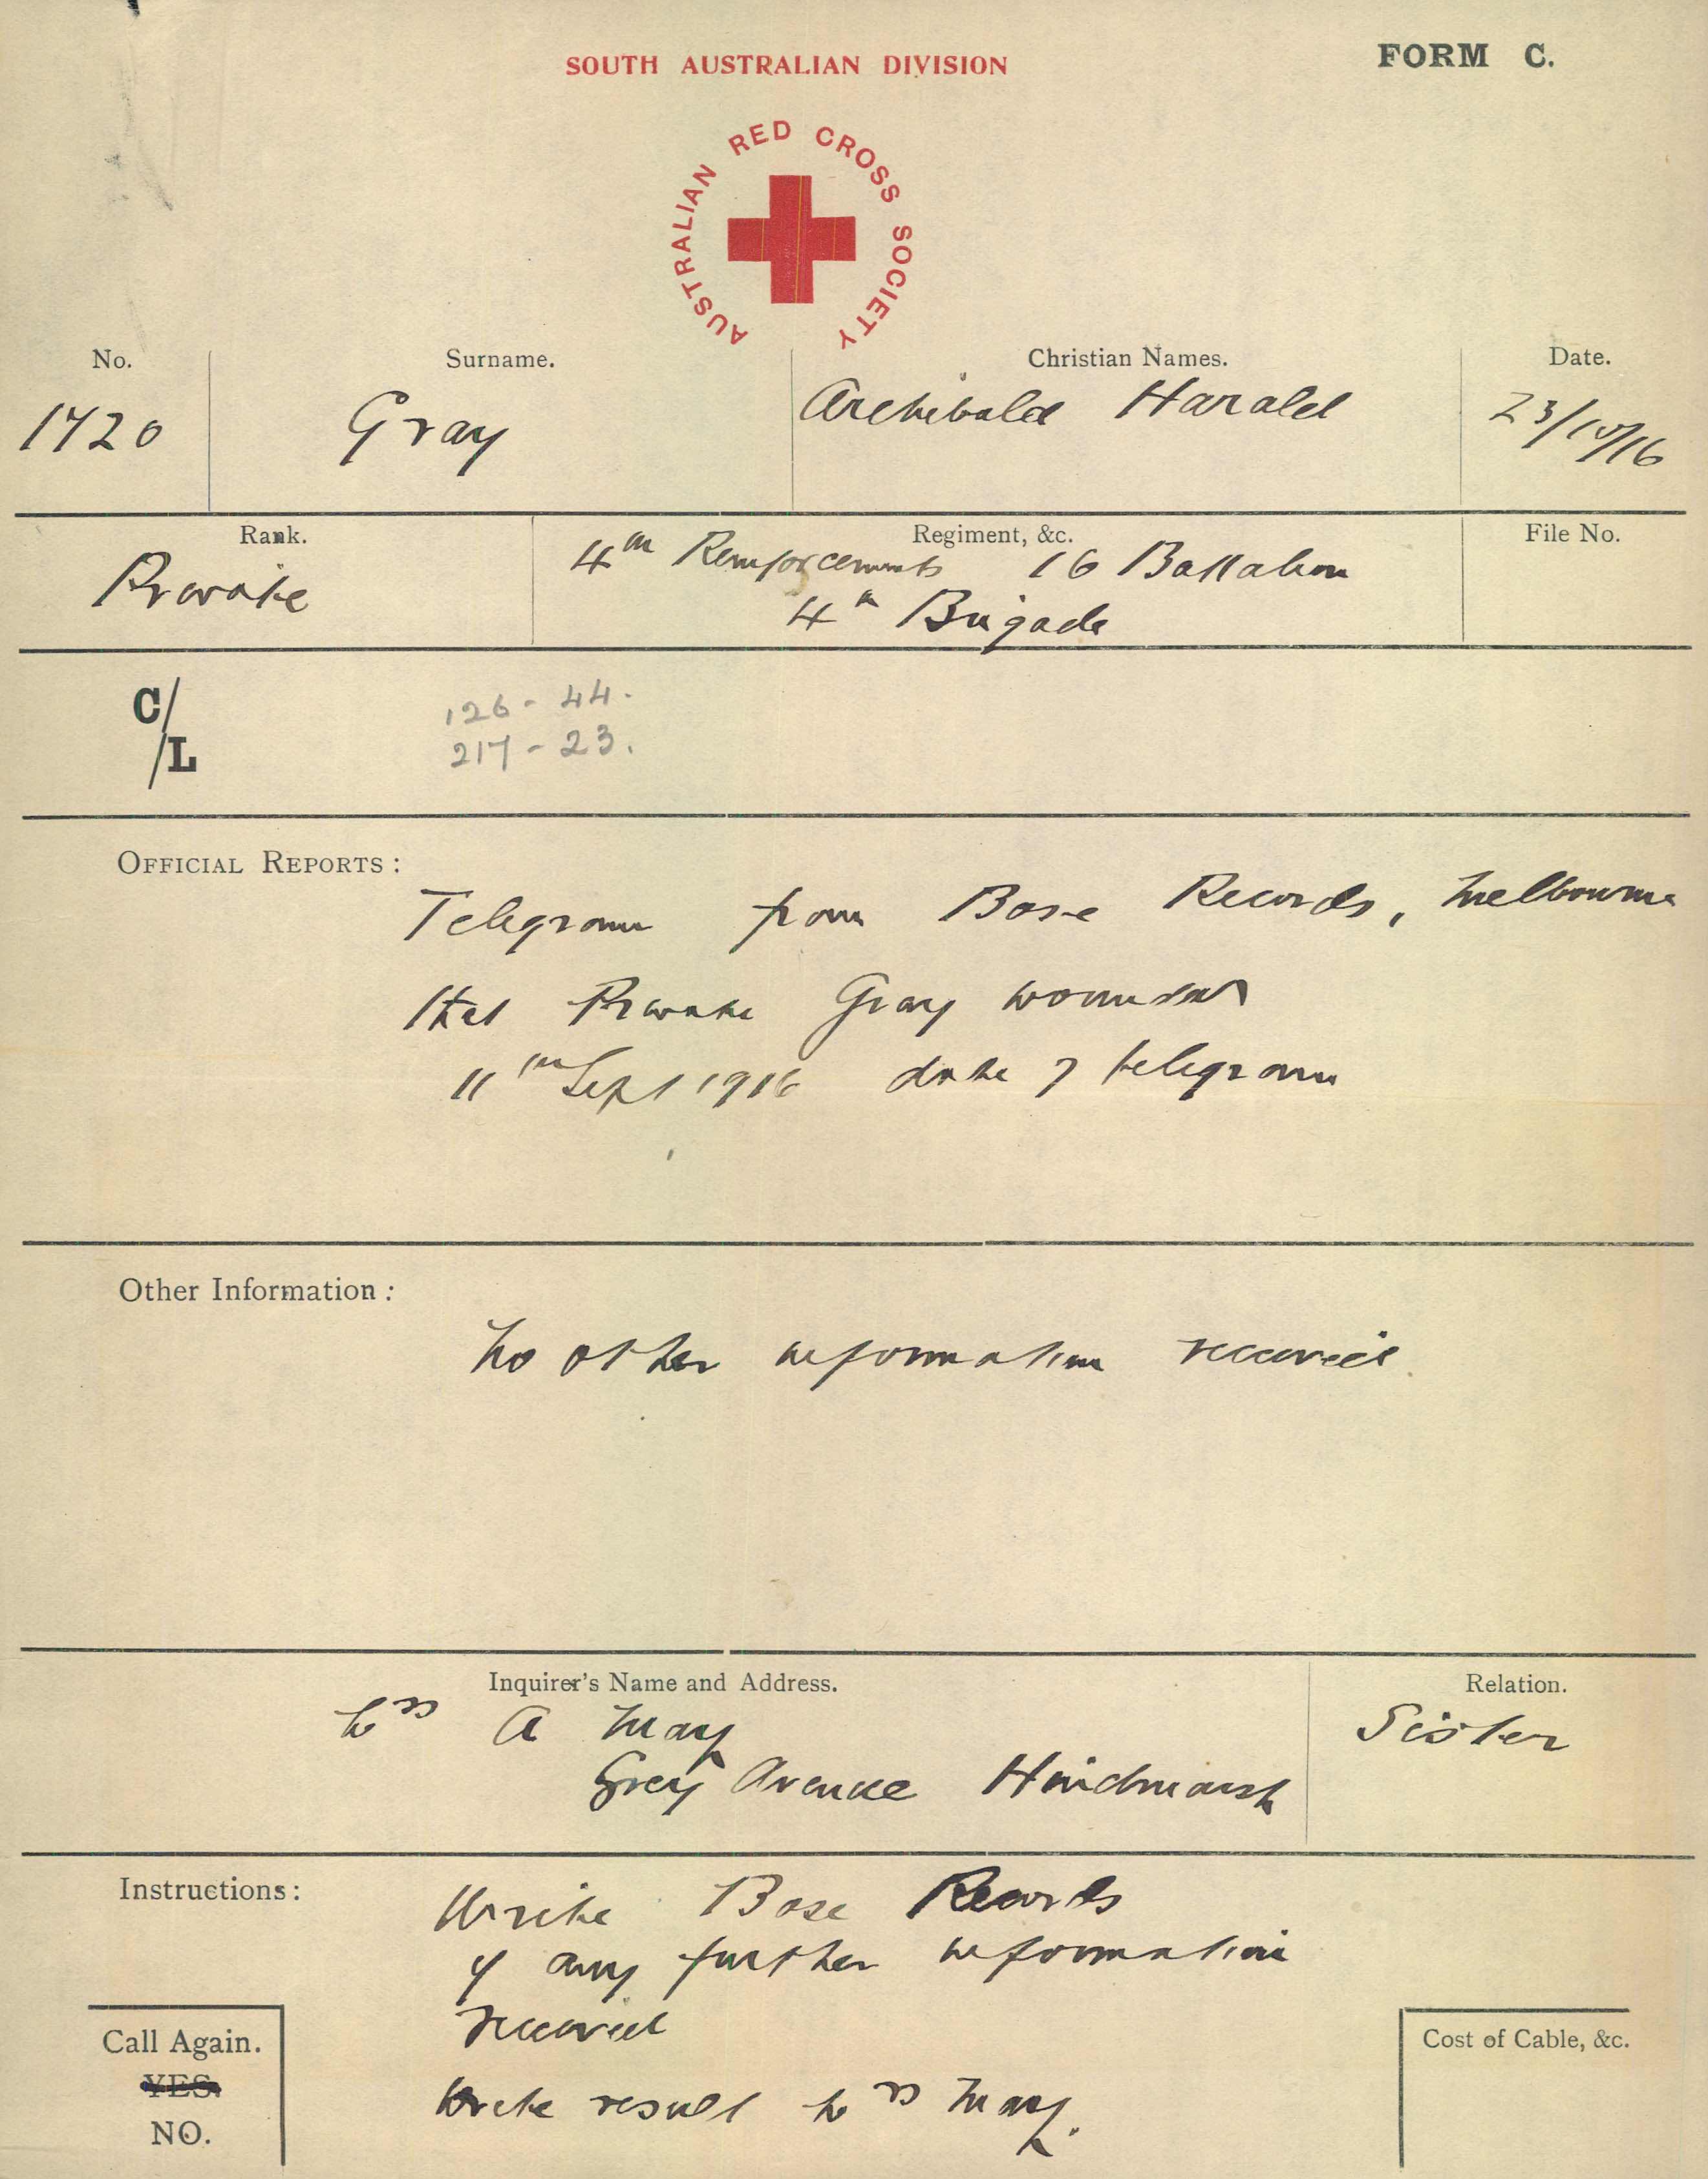 SOUTH AUSTRALIAN DIVISION
FORM C.
AUSTRALIAN RED CROSS SOCIETY
No.
Surname.
Christian Names.
Date.
1720
Gray
Archibald Harald
23/10/16
Rank.
Regiment, &c.
File No.
Private
4th Reinforcements 16 Battalion
4th Brigade
C/
/L
126 - 44.
217 - 23.
OFFICIAL REPORTS:
Telegram from Base Records, Melbourne
that Private Gray wounded
11th Sept 1916 date of telegram
Other Information:
No other information received.
Inquirer's Name and Address.
Relation.
Mrs A May
Sister
Grey Avenue Hindmarsh
Instructions:
Write Base Records
if any further information
received
Call Again.
YES.
NO.
Cost of Cable, &c.
Write result Mrs May.